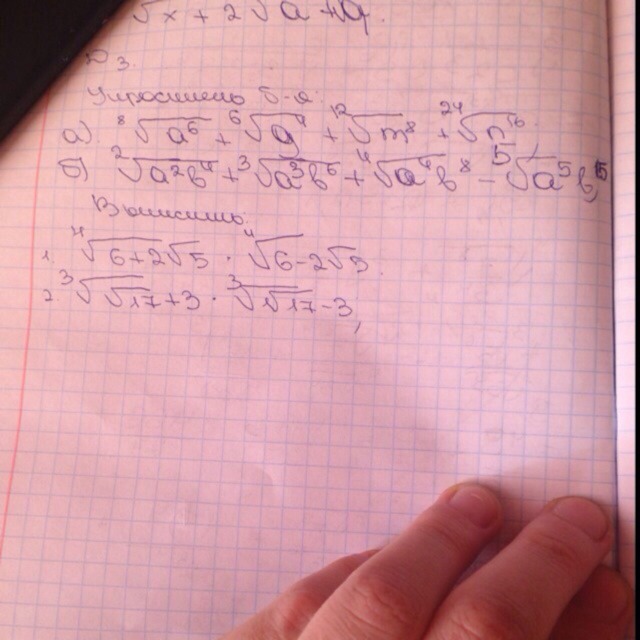 √x + 2√a + √a
№ 3.
Упростить
а) ⁸√a⁶ + ⁶√a⁴ + ¹²√m⁸ + ²⁴√n¹⁶
б) ²√a²b⁴ + ³√a³b⁶ + ⁴√a⁴b⁸ - ⁵√a⁵b¹⁵
Вычислить
1. ⁴√6+2√5 · ⁴√6-2√5
2. ³√√17+3 · ³√√17-3